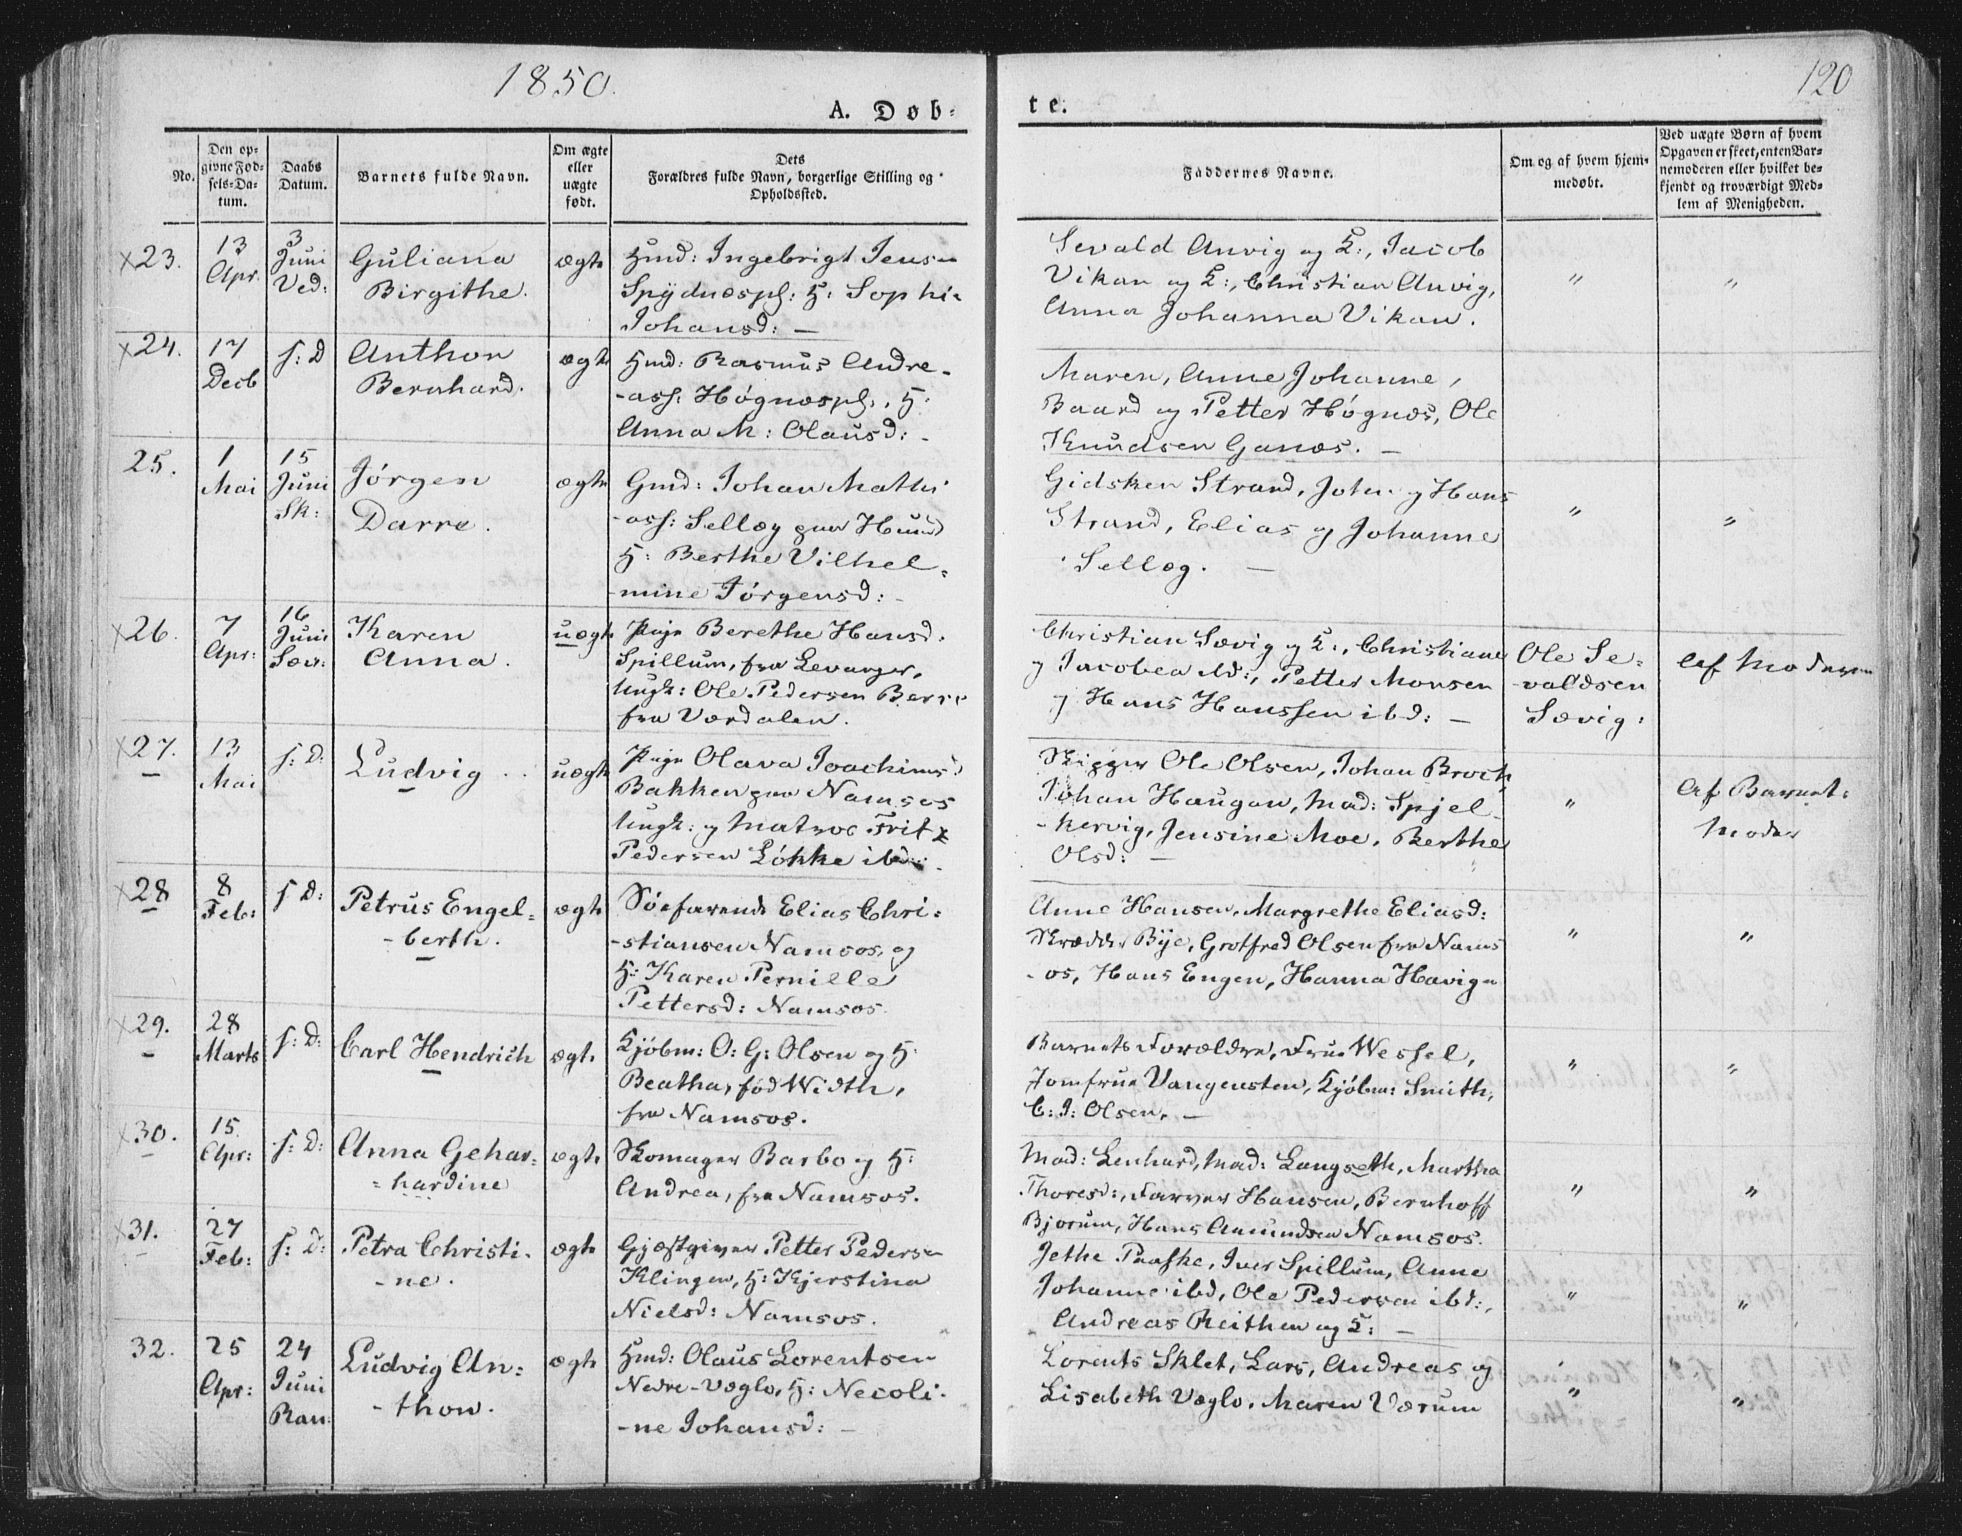 1850.
120
A. Døb-
te.
No.
Den op-
givne Fød-
sels-Da-
tum.
Daabs
Datum.
Barnets fulde Navn.
Om ægte
eller
uægte
født.
Dets
Forældres fulde Navn, borgerlige Stilling og
Opholdssted.
Faddernes Navne.
Om og af hvem hjem-
medøbt.
Ved uægte Børn af hvem
Opgaven er skeet, enten Bar-
nemoderen eller hvilket be-
kjendt og troværdigt Med-
lem af Menigheden.
x23.
13
Apr.
3
Juni
Ved:
Guliana
Birgithe.
ægte
Hmd: Ingebrigt Jens-
Spydnæspl: H: Sophie
Johansd: —
Sevald Anvig og K:, Jacob
Vikan og K:, Christian Anvig,
Anna Johanna Vikan.
"
"
x24.
17
Decb
s: D
Anthon
Bernhard.
ægte
Hmd: Rasmus Andre-
-ass: Høgnæspl:, H:
Anna M: Olausd: -
Maren, Anne Johanne,
Baard og Petter Høgnæs, Ole
Knudsen Ganæs. —
25.
1
Mai
15
Juni
Sk:
Jørgen
Darre.
ægte
Gmd: Johan Mathi
-ass: Sellæg paa Hund
H: Berthe Vilhel-
-mine Jørgensd: -
Gidsken Strand, John og Hans
Strand, Elias og Johanne
Sellæg. —
"
"
x26.
7
Apr:
16
Juni
Sæv:
Karen
Anna.
uægte
Pige Berethe Hansd.
Spillum, fra Levanger,
Ungk: Ole Pedersen Berre
fra Værdalen.
Christian Sævig og K:, Christiane
og Jacobea ibd:, Petter Monsen
og Hans Hanssen ibd: —
Ole Se-
valdsen
Sævig:
Af Moderen
x27.
13
Mai
s: D:
Ludvig
uægte
Pige Olava Joachimsd
Bakken paa Namsos
Ungk: og Matros Fritz
Pedersen Løkke ibd:
Skipper Ole Olsen, Johan Brock,
Johan Haugan, Mad: Spjel-
-kervig, Jensine Moe, Berthe
Olsd: —
"
Af Barnets
Moder
x28
8
Feb:
s D:
Petrus Engel-
-berth.
ægte
Søefarende Elias Chri-
-stiansen Namsos, og
H: Karen Pernille
Pettersd: Namsos.
Anne Hansen, Margrethe Eliasd:
Skrædder Bye, Grotfred Olsen fra Nams
-os, Hans Engen, Hanna Havigen
"
"
x29.
28
Marts
s: D:
Carl Hendrich
ægte
Kjøbm: O: G: Olsen og H:
Beatha, fød Width,
fra Namsos.
Barnets Forældre, Frue Wessel,
Jomfrue Vangensten, Kjøbm: Smith,
C: J: Olsen. —
"
"
x30.
15
Apr:
s: D:
Anna Gehar-
-hardine
ægte
Skomager Barbo og H:
Andrea, fra Namsos.
Mad: Lenhard, Mad: Langseth, Martha
Thoresd:, Farver Hansen, Bernhoff
Bjørum, Hans Amundsen Namsos.
"
"
x31.
27
Feb:
s: D:
Petra Christi-
-ne.
ægte
Gjæstgiver Petter Pedersen
Klingen, H: Kjerstina
Nielsd: Namsos.
Jethe Paaske, Iver Spillum, Anne
Johanne ibd, Ole Pedersen ibd:,
Andreas Reithen og K: —
"
"
32.
25
Apr:
24
Juni
Ran:
Ludvig An-
-thon.
ægte
Hmd: Olaus Lorentsen
Nedre-Væglo, H: Necoli-
-ne Johansd: —
Lorents Sklet, Lars, Andreas og
Lisabeth Væglo, Maren Værum
"
"